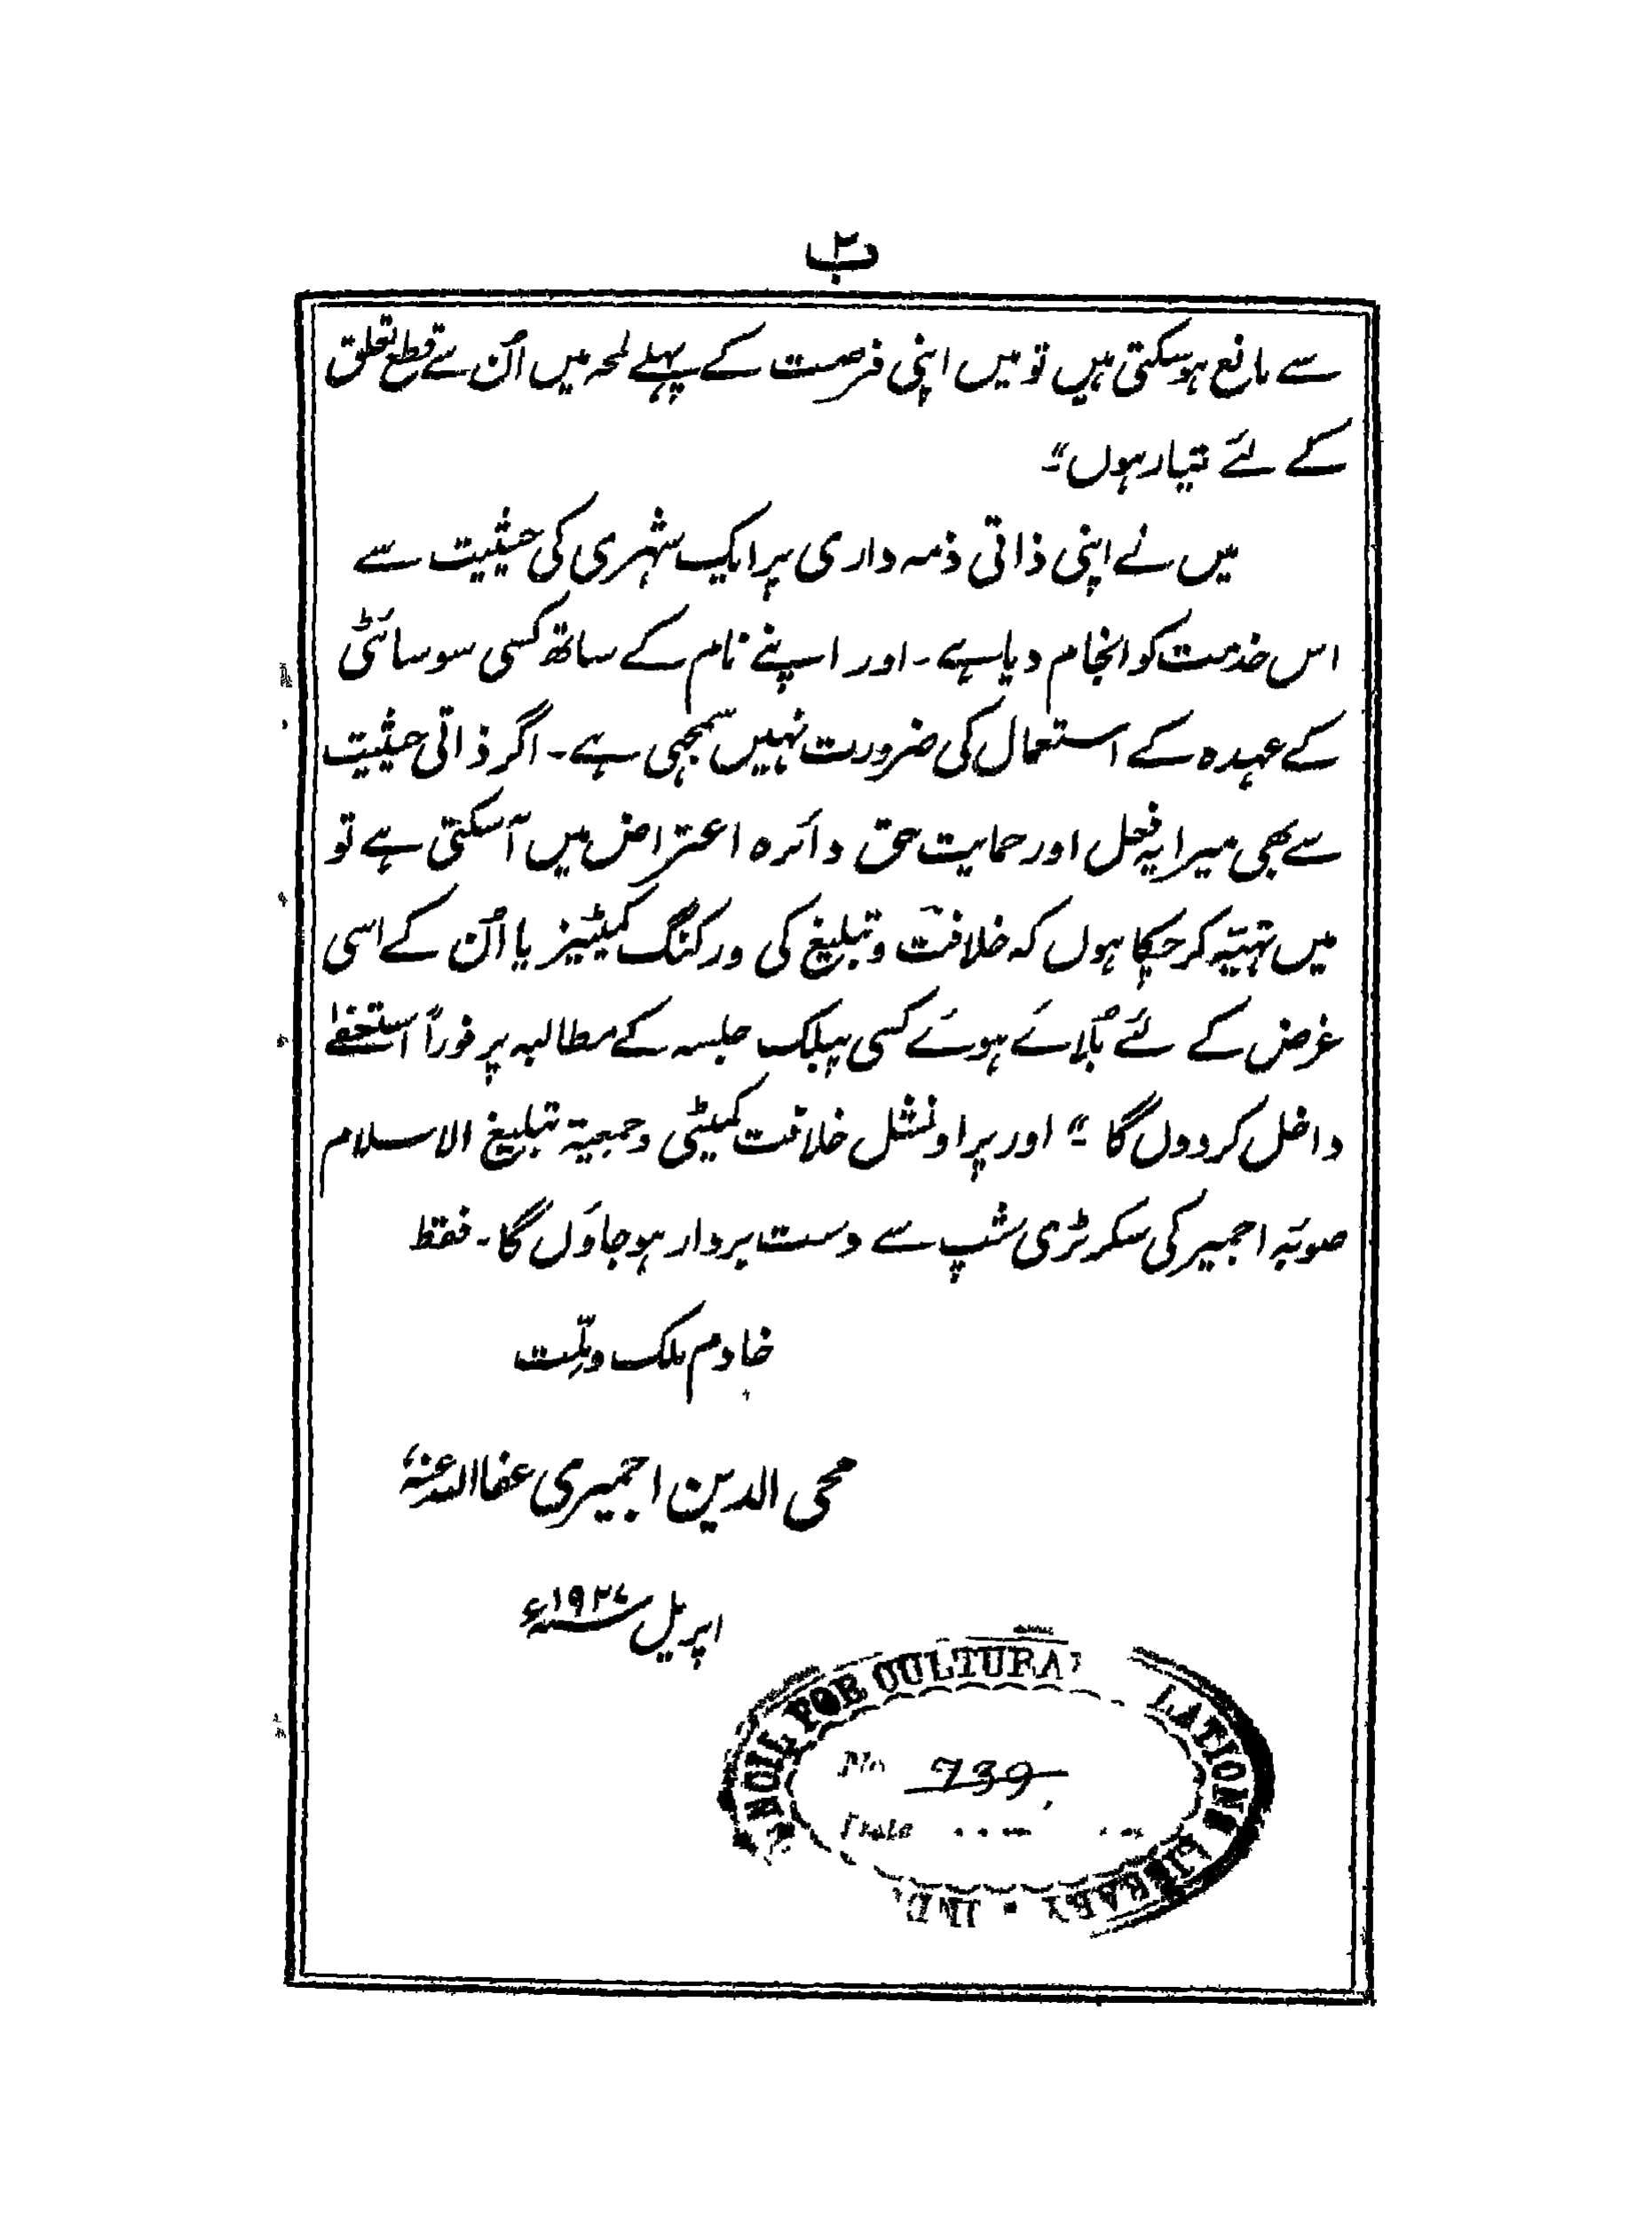 ب۲
سے مانع ہوسکتی ہیں تو میں اپنی فرصت کے پہلے لمحہ میں اُن سے قطع تعلق
کے لئے تیار ہوں"۔
میں نے اپنی ذاتی ذمہ داری پر ایک شہری کی حیثیت سے
اس خدمت کو انجام دیا ہے۔ اور اپنے نام کے ساتھ کسی سوسائٹی
کے عہدہ کے استعمال کی ضرورت نہیں سمجھی ہے۔ اگر ذاتی حیثیت
سے بھی میرا یہ فعل اور حمایت حق دائرہ اعتراض میں آسکتی ہے تو
میں تہیّہ کر چکا ہوں کہ خلافت و تبلیغ کی ورکنگ کمیٹیز یا اُن کے اسی
غرض کے لئے بُلائے ہوئے کسی پبلک جلسہ کے مطالبہ پر فوراً استعفےٰ
داخل کردوں گا"۔ اور پراونشل خلافت کمیٹی و جمعیۃ تبلیغ الاسلام
صوبۂ اجمیر کی سکرٹری شپ سے دست بردار ہو جاؤں گا۔ فقط
خادم ملک و ملّت
محی الدین اجمیری عفا اللہ عنہٗ
اپریل ۱۹۲۷ء
FOR CULTURA LATIONS LIBRARY • IND
No 739
Date